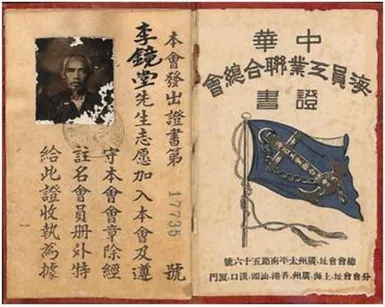 中華
海員工業聯合總會
證書
總會會址.廣州太平南路五十六號
分會會址.上海.廣州.香港.汕頭.漢口.厦門
本會發出證書第 17735 號
李鏡堂先生志愿加入本會及遵
守本會會章除經
註名會員册外特
給此證收執為據